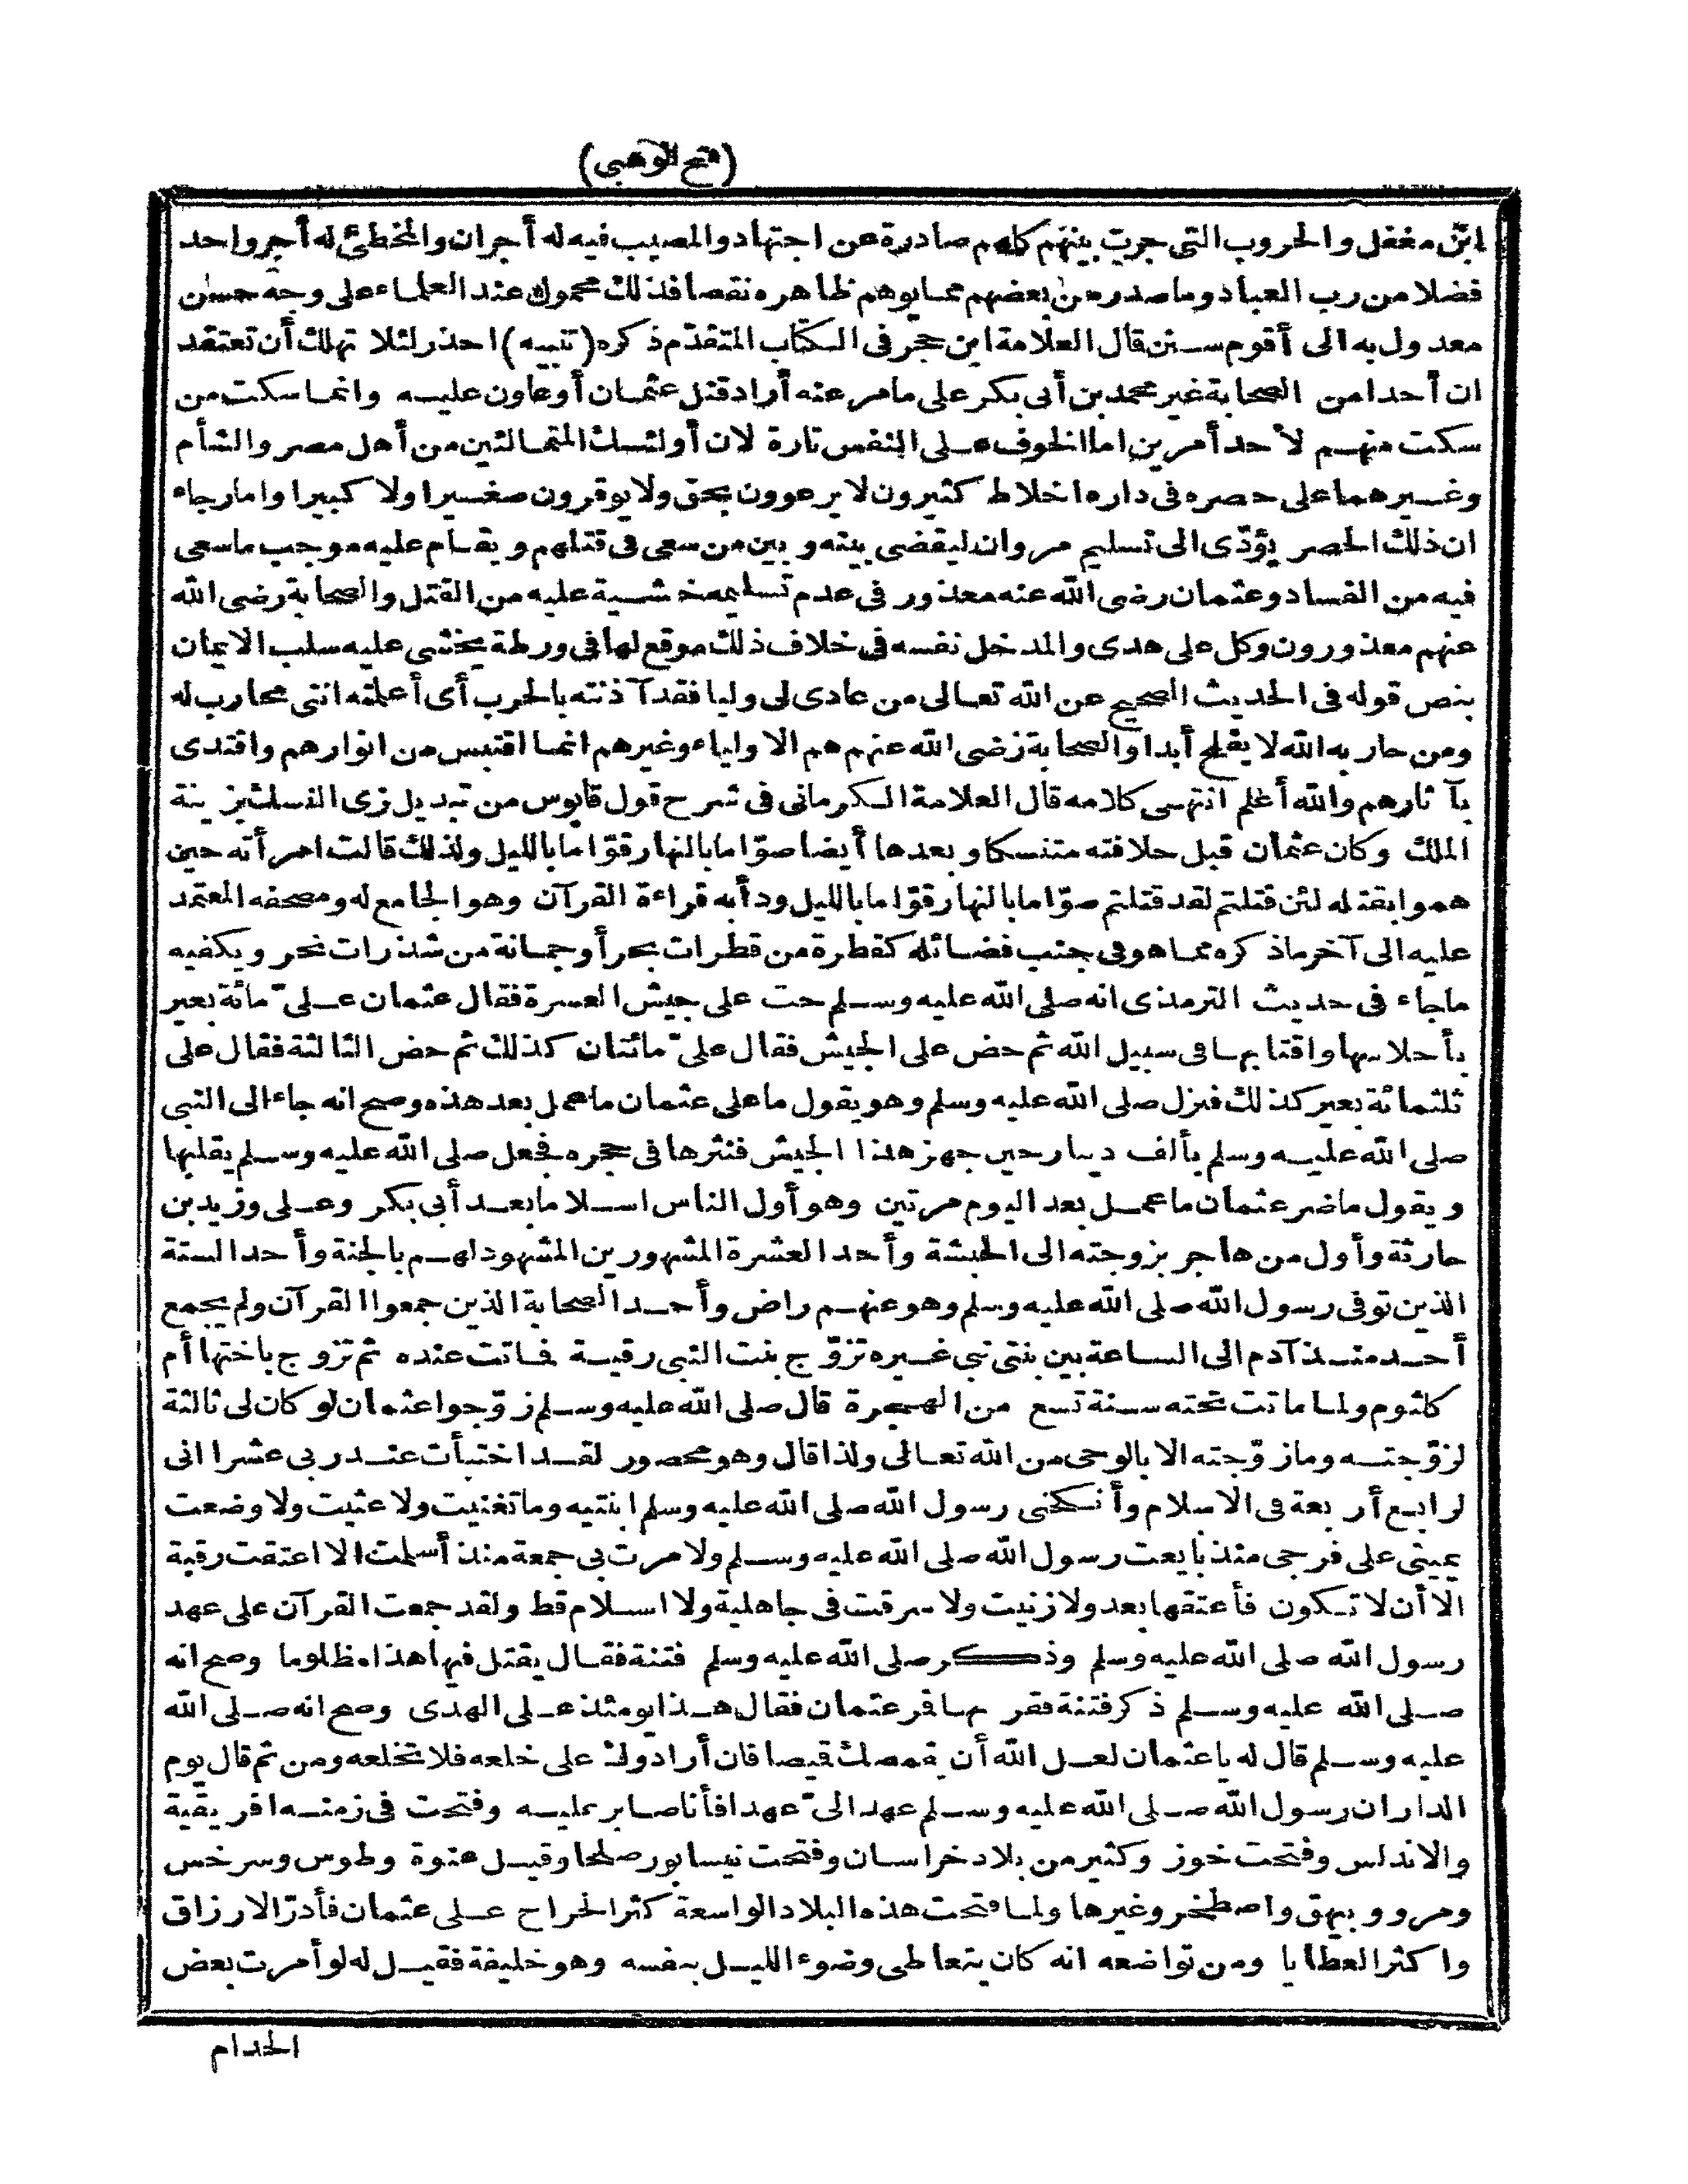 (فتح الوهبي)
ابن مغفل والحروب التى جرت بينهم كلهم صادرة عن اجتهاد والمصيب فيه له أجران والمخطئ له أجر واحد
فضلا من رب العباد وما صدر من بعضهم مما يوهم ظاهره نقصا فذلك محمول عند العلماء على وجه حسن
معدول به الى أقوم سنن قال العلامة ابن حجر فى الكتاب المتقدّم ذكره (تنبيه) احذر لئلا تهلك أن تعتقد
ان أحدا من الصحابة غير محمد بن أبى بكر على ما مر عنه أراد قتل عثمان أو عاون عليه وانما سكت من
سكت منهم لأحد أمرين اما الخوف على النفس تارة لان أولئك المتمالئين من أهل مصر والشأم
وغيرهما على حصره فى داره اخلاط كثيرون لا يرعوون بحق ولا يوقرون صغيرا ولا كبيرا واما رجاء
ان ذلك الحصر يؤدّى الى تسليم مروان ليقضى بينه وبين من سعى فى قتلهم ويقام عليه موجب ما سعى
فيه من الفساد وعثمان رضى الله عنه معذور فى عدم تسليمه خشية عليه من القتل والصحابة رضى الله
عنهم معذورون وكل على هدى والمدخل نفسه فى خلاف ذلك موقع لها فى ورطة يخشى عليه سلب الايمان
بنص قوله فى الحديث الصحيح عن الله تعالى من عادى لى وليا فقد آذنته بالحرب أى أعلمته انني محارب له
ومن حاربه الله لا يفلح أبدا والصحابة رضى الله عنهم هم الاولياء وغيرهم انما اقتبس من انوارهم واقتدى
بآثارهم والله أعلم انتهى كلامه قال العلامة الكرمانى فى شرح قول قابوس من تبديل زى النسك بزينة
الملك وكان عثمان قبل خلافته متنسكا وبعدها أيضا صوّاما بالنهار قوّاما بالليل ولذلك قالت امرأته حين
هموا بقتله لئن قتلتم لقد قتلتم صوّاما بالنهار قوّاما بالليل ودأبه قراءة القرآن وهو الجامع له ومصحفه المعتمد
عليه الى آخر ما ذكره مما هو فى جنب فضائله كقطرة من قطرات بحر أو جمانة من شذرات نحر ويكفيه
ما جاء فى حديث الترمذى انه صلى الله عليه وسلم حث على جيش العسرة فقال عثمان علىّ مائة بعير
بأحلاسها واقتابها فى سبيل الله ثم حض على الجيش فقال علىّ مائتان كذلك ثم حض الثالثة فقال على
ثلثمائة بعير كذلك فنزل صلى الله عليه وسلم وهو يقول ما على عثمان ما عمل بعد هذه وصح انه جاء الى النبى
صلى الله عليه وسلم بألف دينار حين جهز هذا الجيش فنثرها فى حجره فجعل صلى الله عليه وسلم يقلبها
ويقول ما ضر عثمان ما عمل بعد اليوم مرتين وهو أول الناس اسلاما بعد أبى بكر وعلى وزيد بن
حارثة وأول من هاجر بزوجته الى الحبشة وأحد العشرة المشهورين المشهود لهم بالجنة وأحد الستة
الذين توفى رسول الله صلى الله عليه وسلم وهو عنهم راض وأحد الصحابة الذين جمعوا القرآن ولم يجمع
أحد منذ آدم الى الساعة بين بنتى نبى غيره تزوّج بنت النبى رقية فماتت عنده ثم تزوج باختها أم
كلثوم ولما ماتت تحته سنة تسع من الهجرة قال صلى الله عليه وسلم زوّجوا عثمان لو كان لى ثالثة
لزوّجته وما زوّجته الا بالوحى من الله تعالى ولذا قال وهو محصور لقد اختبأت عند ربى عشرا انى
لرابع أربعة فى الاسلام وأنكحنى رسول الله صلى الله عليه وسلم ابنتيه وما تغنيت ولا عثيت ولا وضعت
يمينى على فرجى منذ بايعت رسول الله صلى الله عليه وسلم ولا مرت بى جمعة منذ أسلمت الا اعتقت رقبة
الا أن لا تكون فأعتقها بعد ولا زنيت ولا سرقت فى جاهلية ولا اسلام قط ولقد جمعت القرآن على عهد
رسول الله صلى الله عليه وسلم وذكر صلى الله عليه وسلم فتنة فقال يقتل فيها هذا مظلوما وصح انه
صلى الله عليه وسلم ذكر فتنة فقر بها فر عثمان فقال هذا يومئذ على الهدى وصح انه صلى الله
عليه وسلم قال له يا عثمان لعل الله أن يقمصك قميصا فان أرادوك على خلعه فلا تخلعه ومن ثم قال يوم
الدار ان رسول الله صلى الله عليه وسلم عهد الىّ عهدا فأنا صابر عليه وفتحت فى زمنه افريقية
والاندلس وفتحت خوز وكثير من بلاد خراسان وفتحت نيسابور صلحا وقيل عنوة وطوس وسرخس
ومرو وبيهق واصطخر وغيرها ولما فتحت هذه البلاد الواسعة كثر الخراج على عثمان فأدرّ الارزاق
واكثر العطايا ومن تواضعه انه كان يتعاطى وضوء الليل بنفسه وهو خليفة فقيل له لو أمرت بعض
الخدام